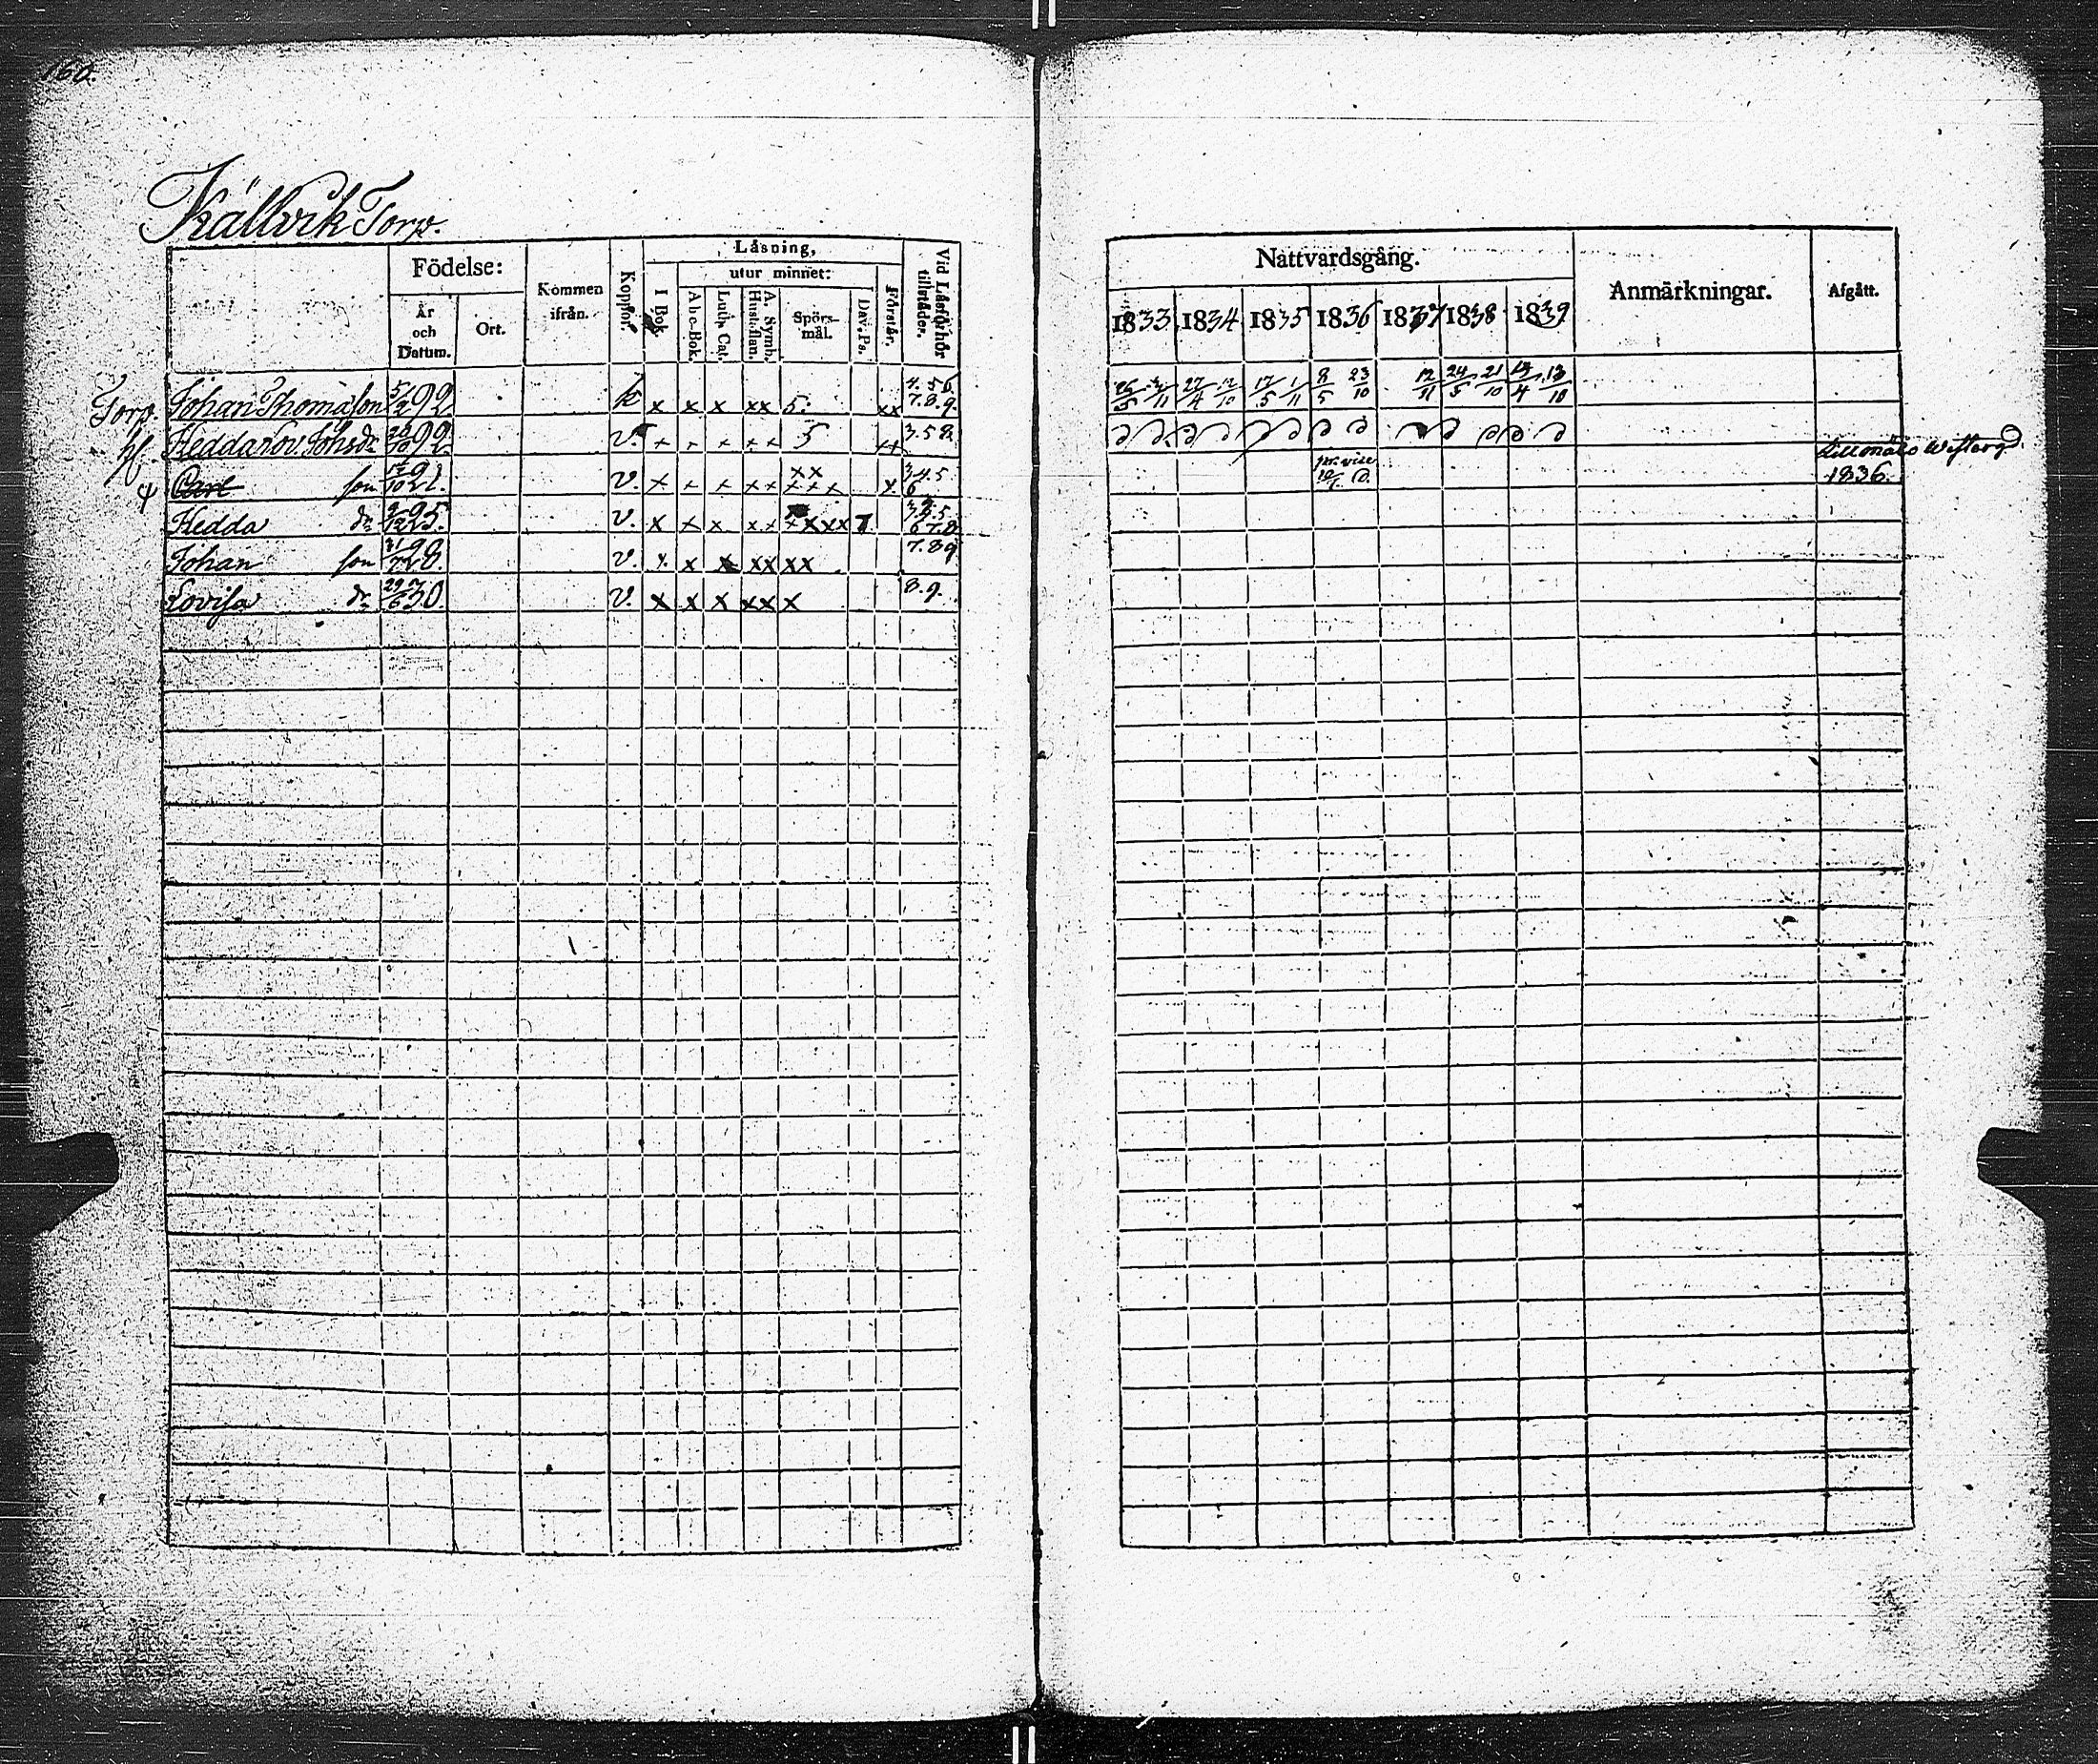 160.
Källvik Torp.
Födelse:
År och Datum.
Ort.
Kommen ifrån.
Koppor.
Läsning,
I Bok
utur minnet:
Abc-Bok.
Luth. Cat.
A. Symb. Hustaflan.
Spörsmål.
Dav. Ps.
Förstår.
Vid Läsförhör tillstädes.
Torp. Johan Thomasson 5/2 92 k x x x xx 5. xx 4. 5 6 7. 8. 9.
h. Hedda Lov. Johsdr 92 v. + + + + + 5 3. 5 8.
Carl son 21. v. x + + x + xx x x x x 3 4. 5 6
Hedda dr 25. v. x x x x x x x x x 7.
Johan son 31/7 28. v. x x x xx xx 7. 8 9
Lovisa dr 29/6 30. v. x x x xx x 8. 9.
Nattvardsgång.
Anmärkningar.
Afgått.
1833 1834 1835 1836 1837 1838 1839
26/5 3/11 27/4 12/10 17/5 1/11 8/5 23/10 12/11 24/5 21/10 14/4 13/10
1836.